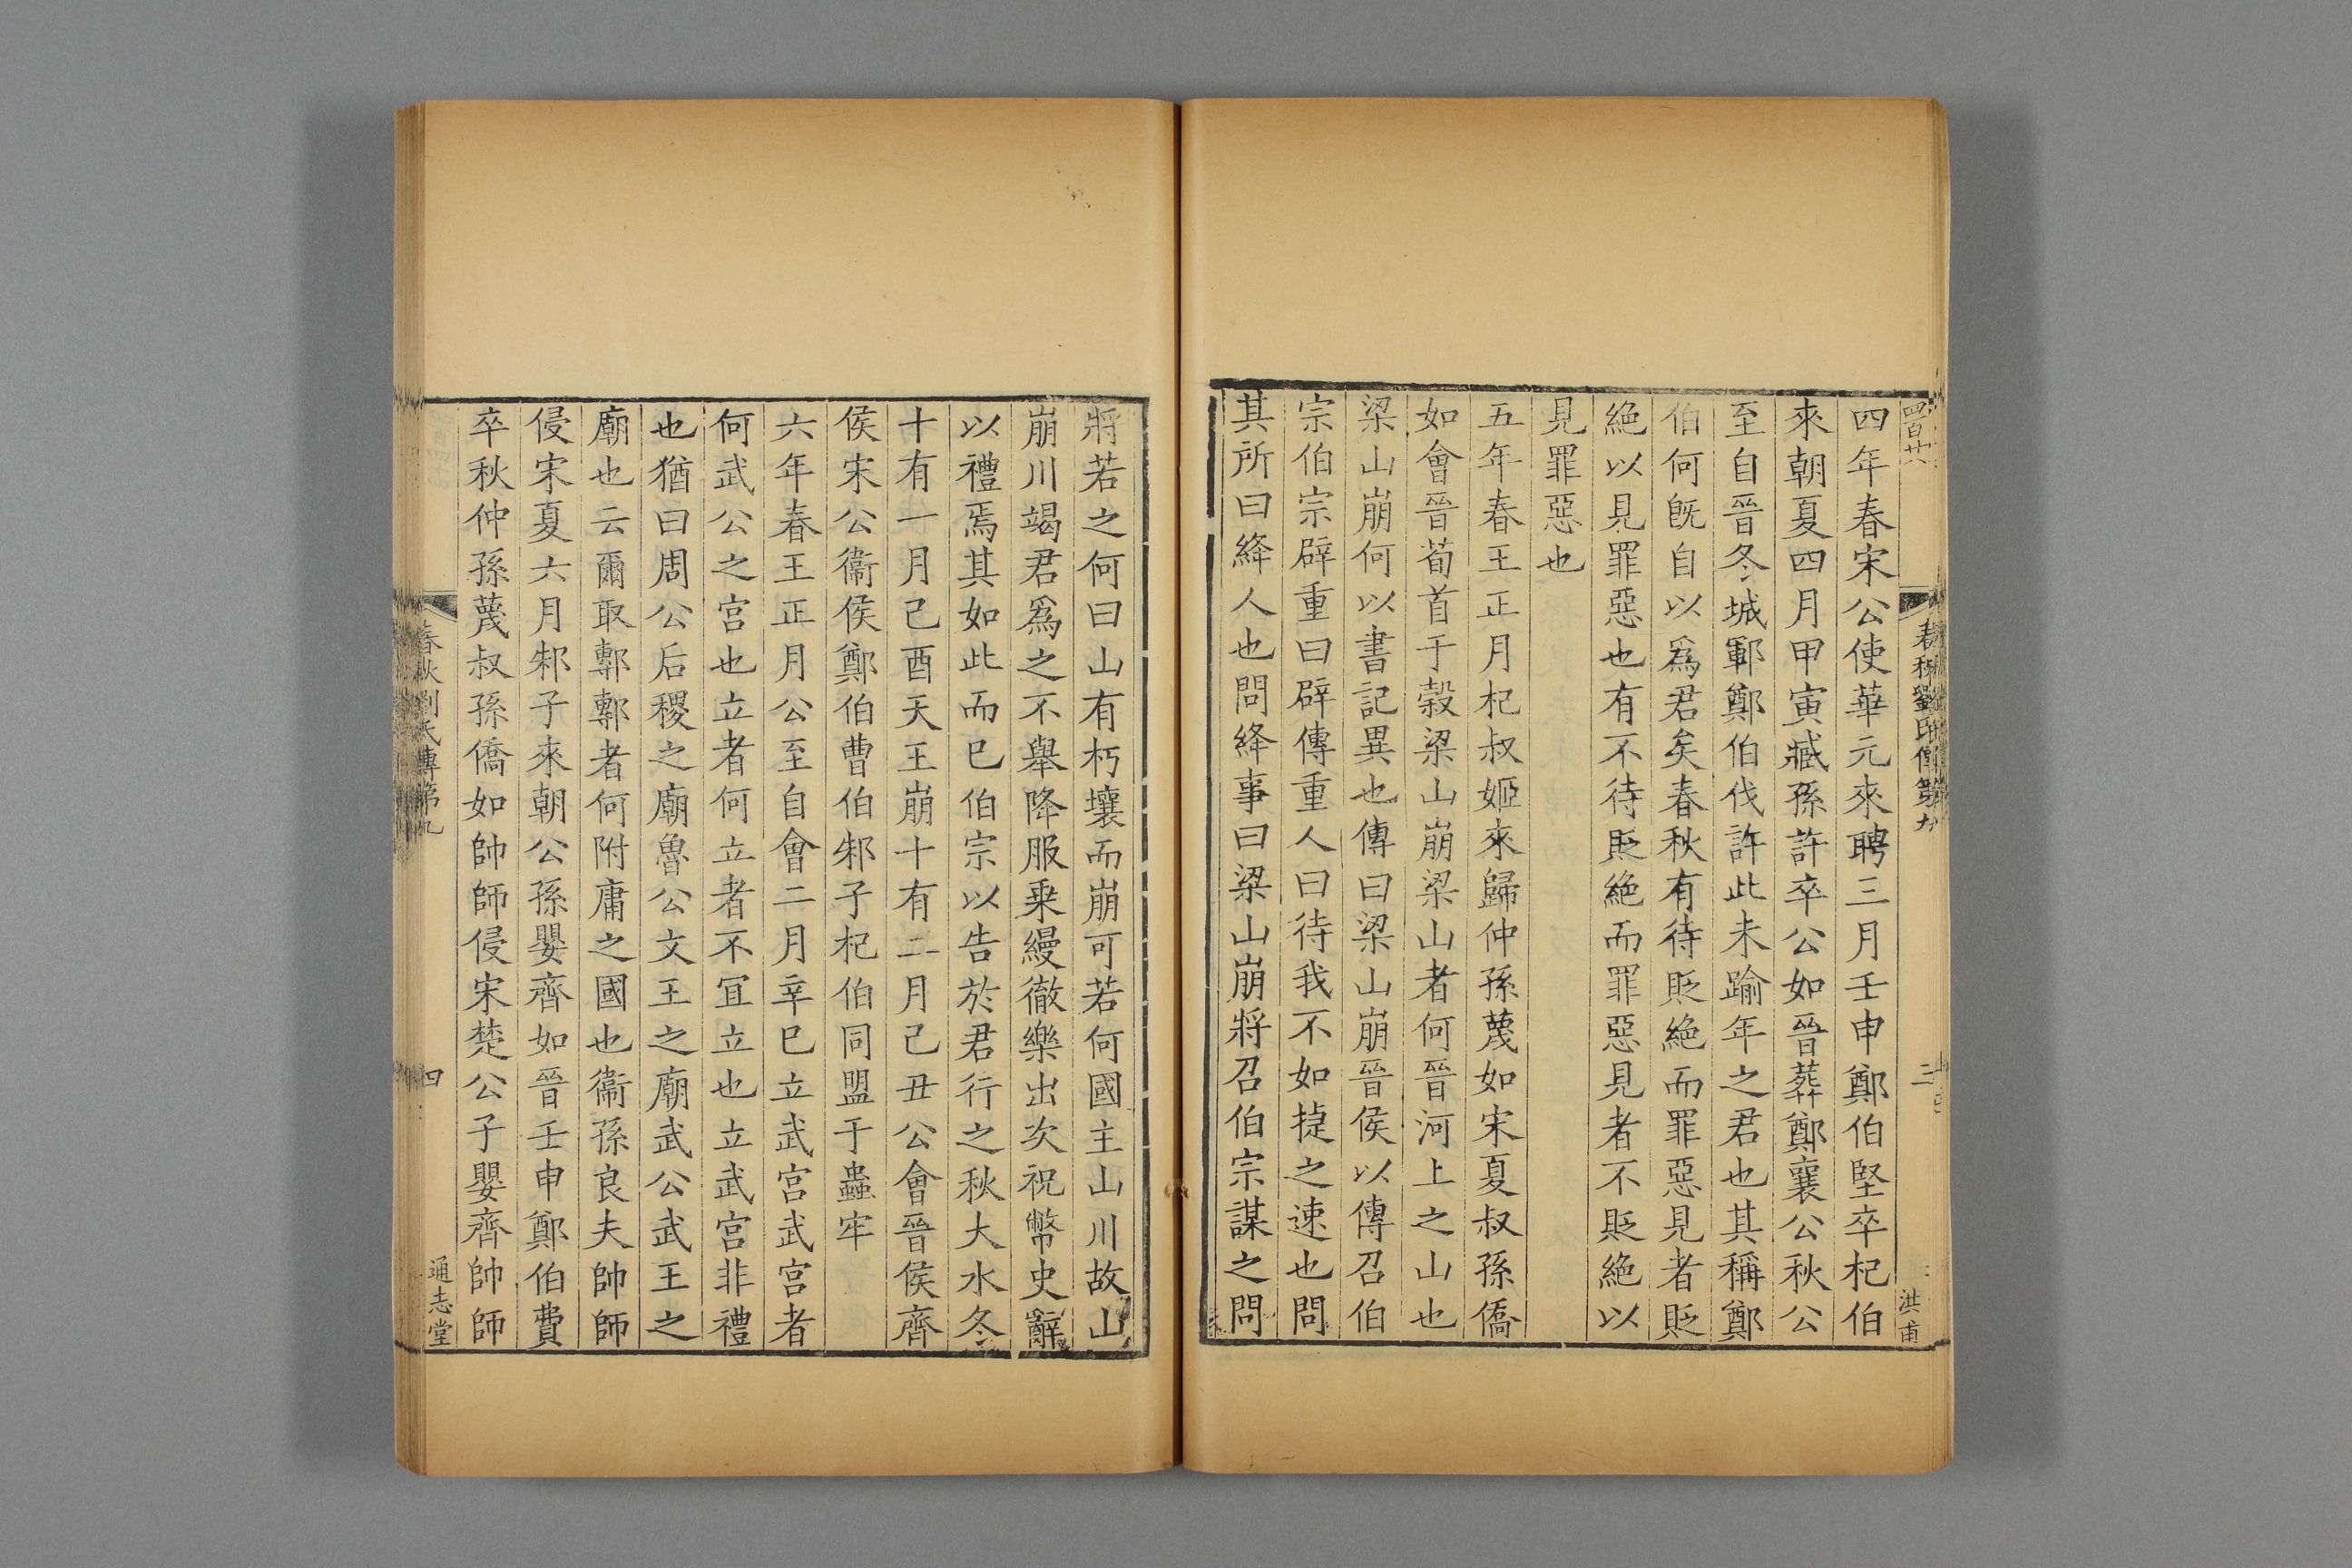 四百廿六
春秋劉氏傳第九
三
洪甫
四年春宋公使華元來聘三月壬申鄭伯堅卒杞伯
來朝夏四月甲寅臧孫許卒公如晉葬鄭襄公秋公
至自晉冬城鄆鄭伯伐許此未踰年之君也其稱鄭
伯何旣自以爲君矣春秋有待貶絶而罪惡見者貶
絶以見罪惡也有不待貶絶而罪惡見者不貶絶以
見罪惡也
五年春王正月杞叔姬來歸仲孫蔑如宋夏叔孫僑
如會晉荀首于榖梁山崩梁山者何晉河上之山也
梁山崩何以書記異也傳曰梁山崩晉侯以傳召伯
宗伯宗辟重曰辟傳重人曰待我不如捷之速也問
其所曰絳人也問絳事曰梁山崩將召伯宗謀之問
將若之何曰山有朽壤而崩可若何國主山川故山
崩川竭君爲之不舉降服乗縵徹樂出次祝幣史辭
以禮焉其如此而已伯宗以告於君行之秋大水冬
十有一月己酉天王崩十有二月己丑公會晉侯齊
侯宋公衞侯鄭伯曹伯邾子杞伯同盟于蟲牢
六年春王正月公至自會二月辛巳立武宫武宫者
何武公之宫也立者何立者不冝立也立武宫非禮
也猶曰周公后稷之廟魯公文王之廟武公武王之
廟也云爾取鄟鄟者何附庸之國也衞孫良夫帥師
侵宋夏六月邾子來朝公孫嬰齊如晉壬申鄭伯費
卒秋仲孫蔑叔孫僑如帥師侵宋楚公子嬰齊帥師
春秋劉氏傳第九
四
通志堂